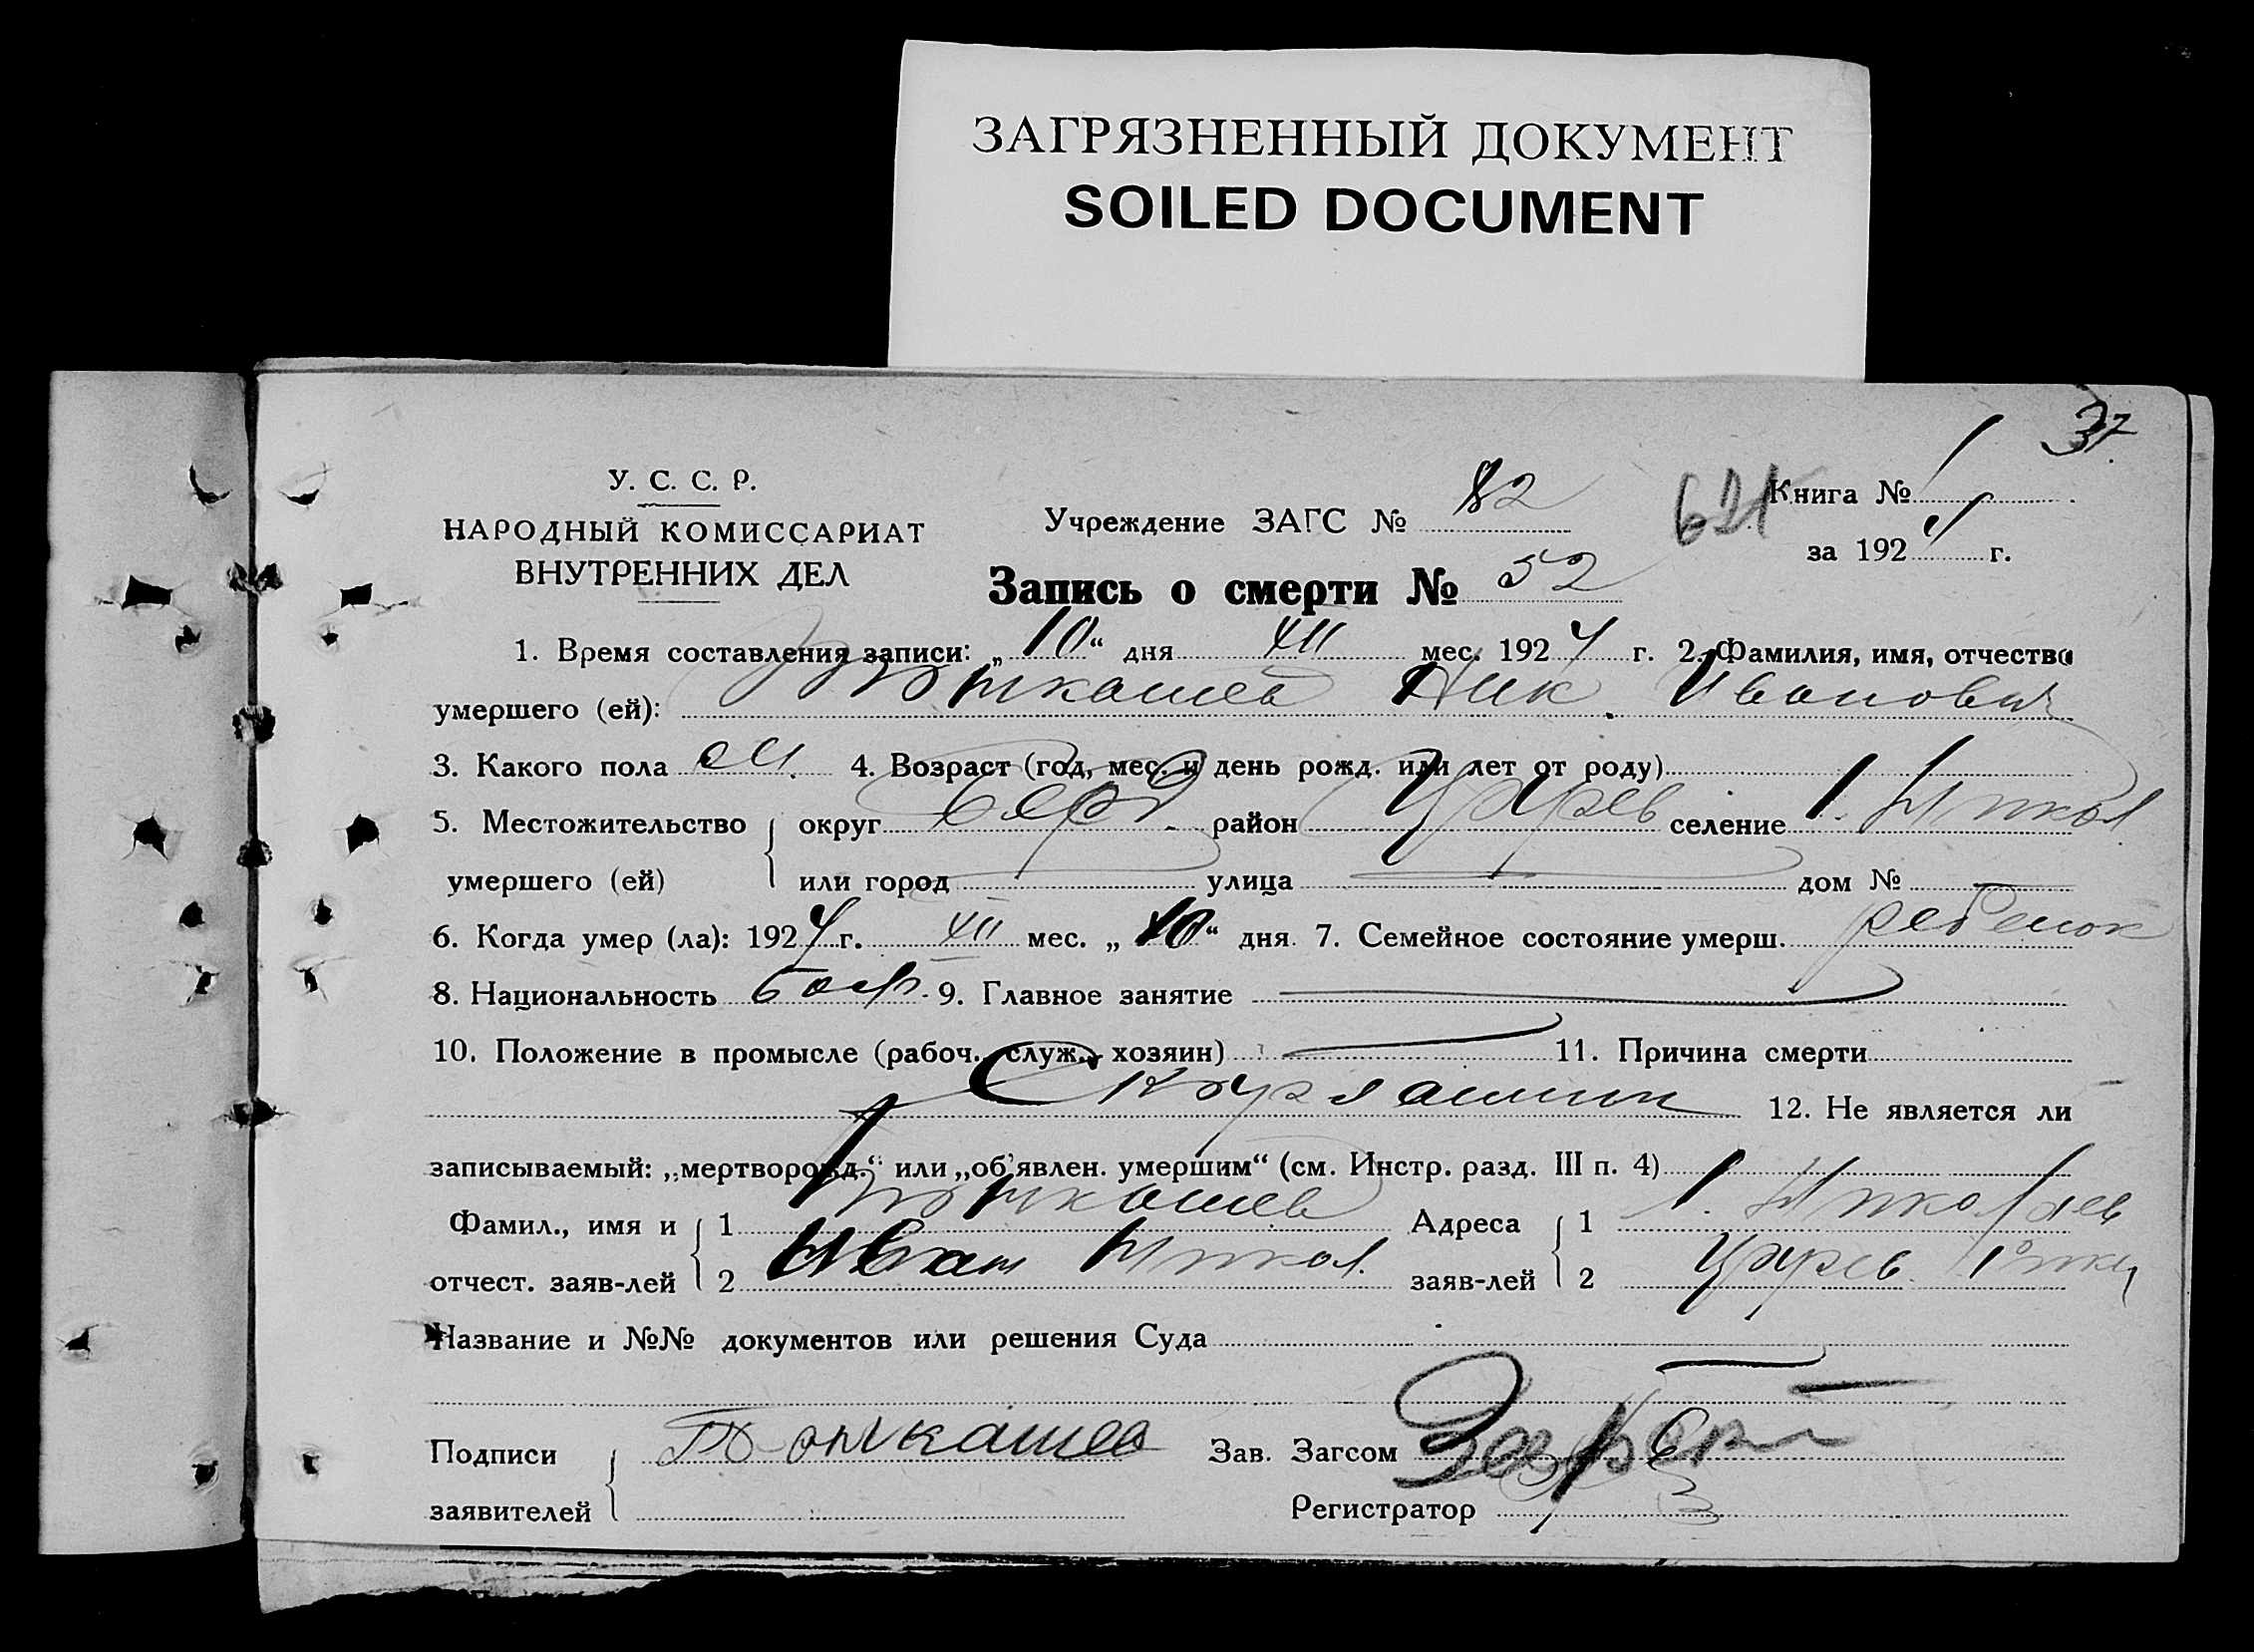 ЗАГРЯЗНЕННЫЙ ДОКУМЕНТ
SOILED DOCUMENT
37
У. С. С. Р.
НАРОДНЫЙ КОМИССАРИАТ
ВНУТРЕННИХ ДЕЛ
Учреждение ЗАГС № 82
621
Книга № 1
за 192 г.
Запись о смерти № 52
1. Время составления записи: „10“ дня XII мес. 1924 г. 2. Фамилия, имя, отчество
умершего (ей): Ник. Иванович
3. Какого пола м. 4. Возраст (год, мес. и день рожд. или лет от роду)
5. Местожительство округ район Царев селение 1. Никол
умершего (ей) или город улица дом №
6. Когда умер (ла): 1924 г. XII мес. „10“ дня. 7. Семейное состояние умерш. ребенок
8. Национальность болг. 9. Главное занятие
10. Положение в промысле (рабоч., служ., хозяин) 11. Причина смерти
12. Не является ли
записываемый: „мертворожд.“ или „об'явлен. умершим“ (см. Инстр. разд. III п. 4)
Фамил., имя и 1 Адреса 1 1. Николаев
отчест. заяв-лей 2 Иван Никол. заяв-лей 2 Царев.
Название и №№ документов или решения Суда
Подписи Зав. Загсом
заявителей Регистратор